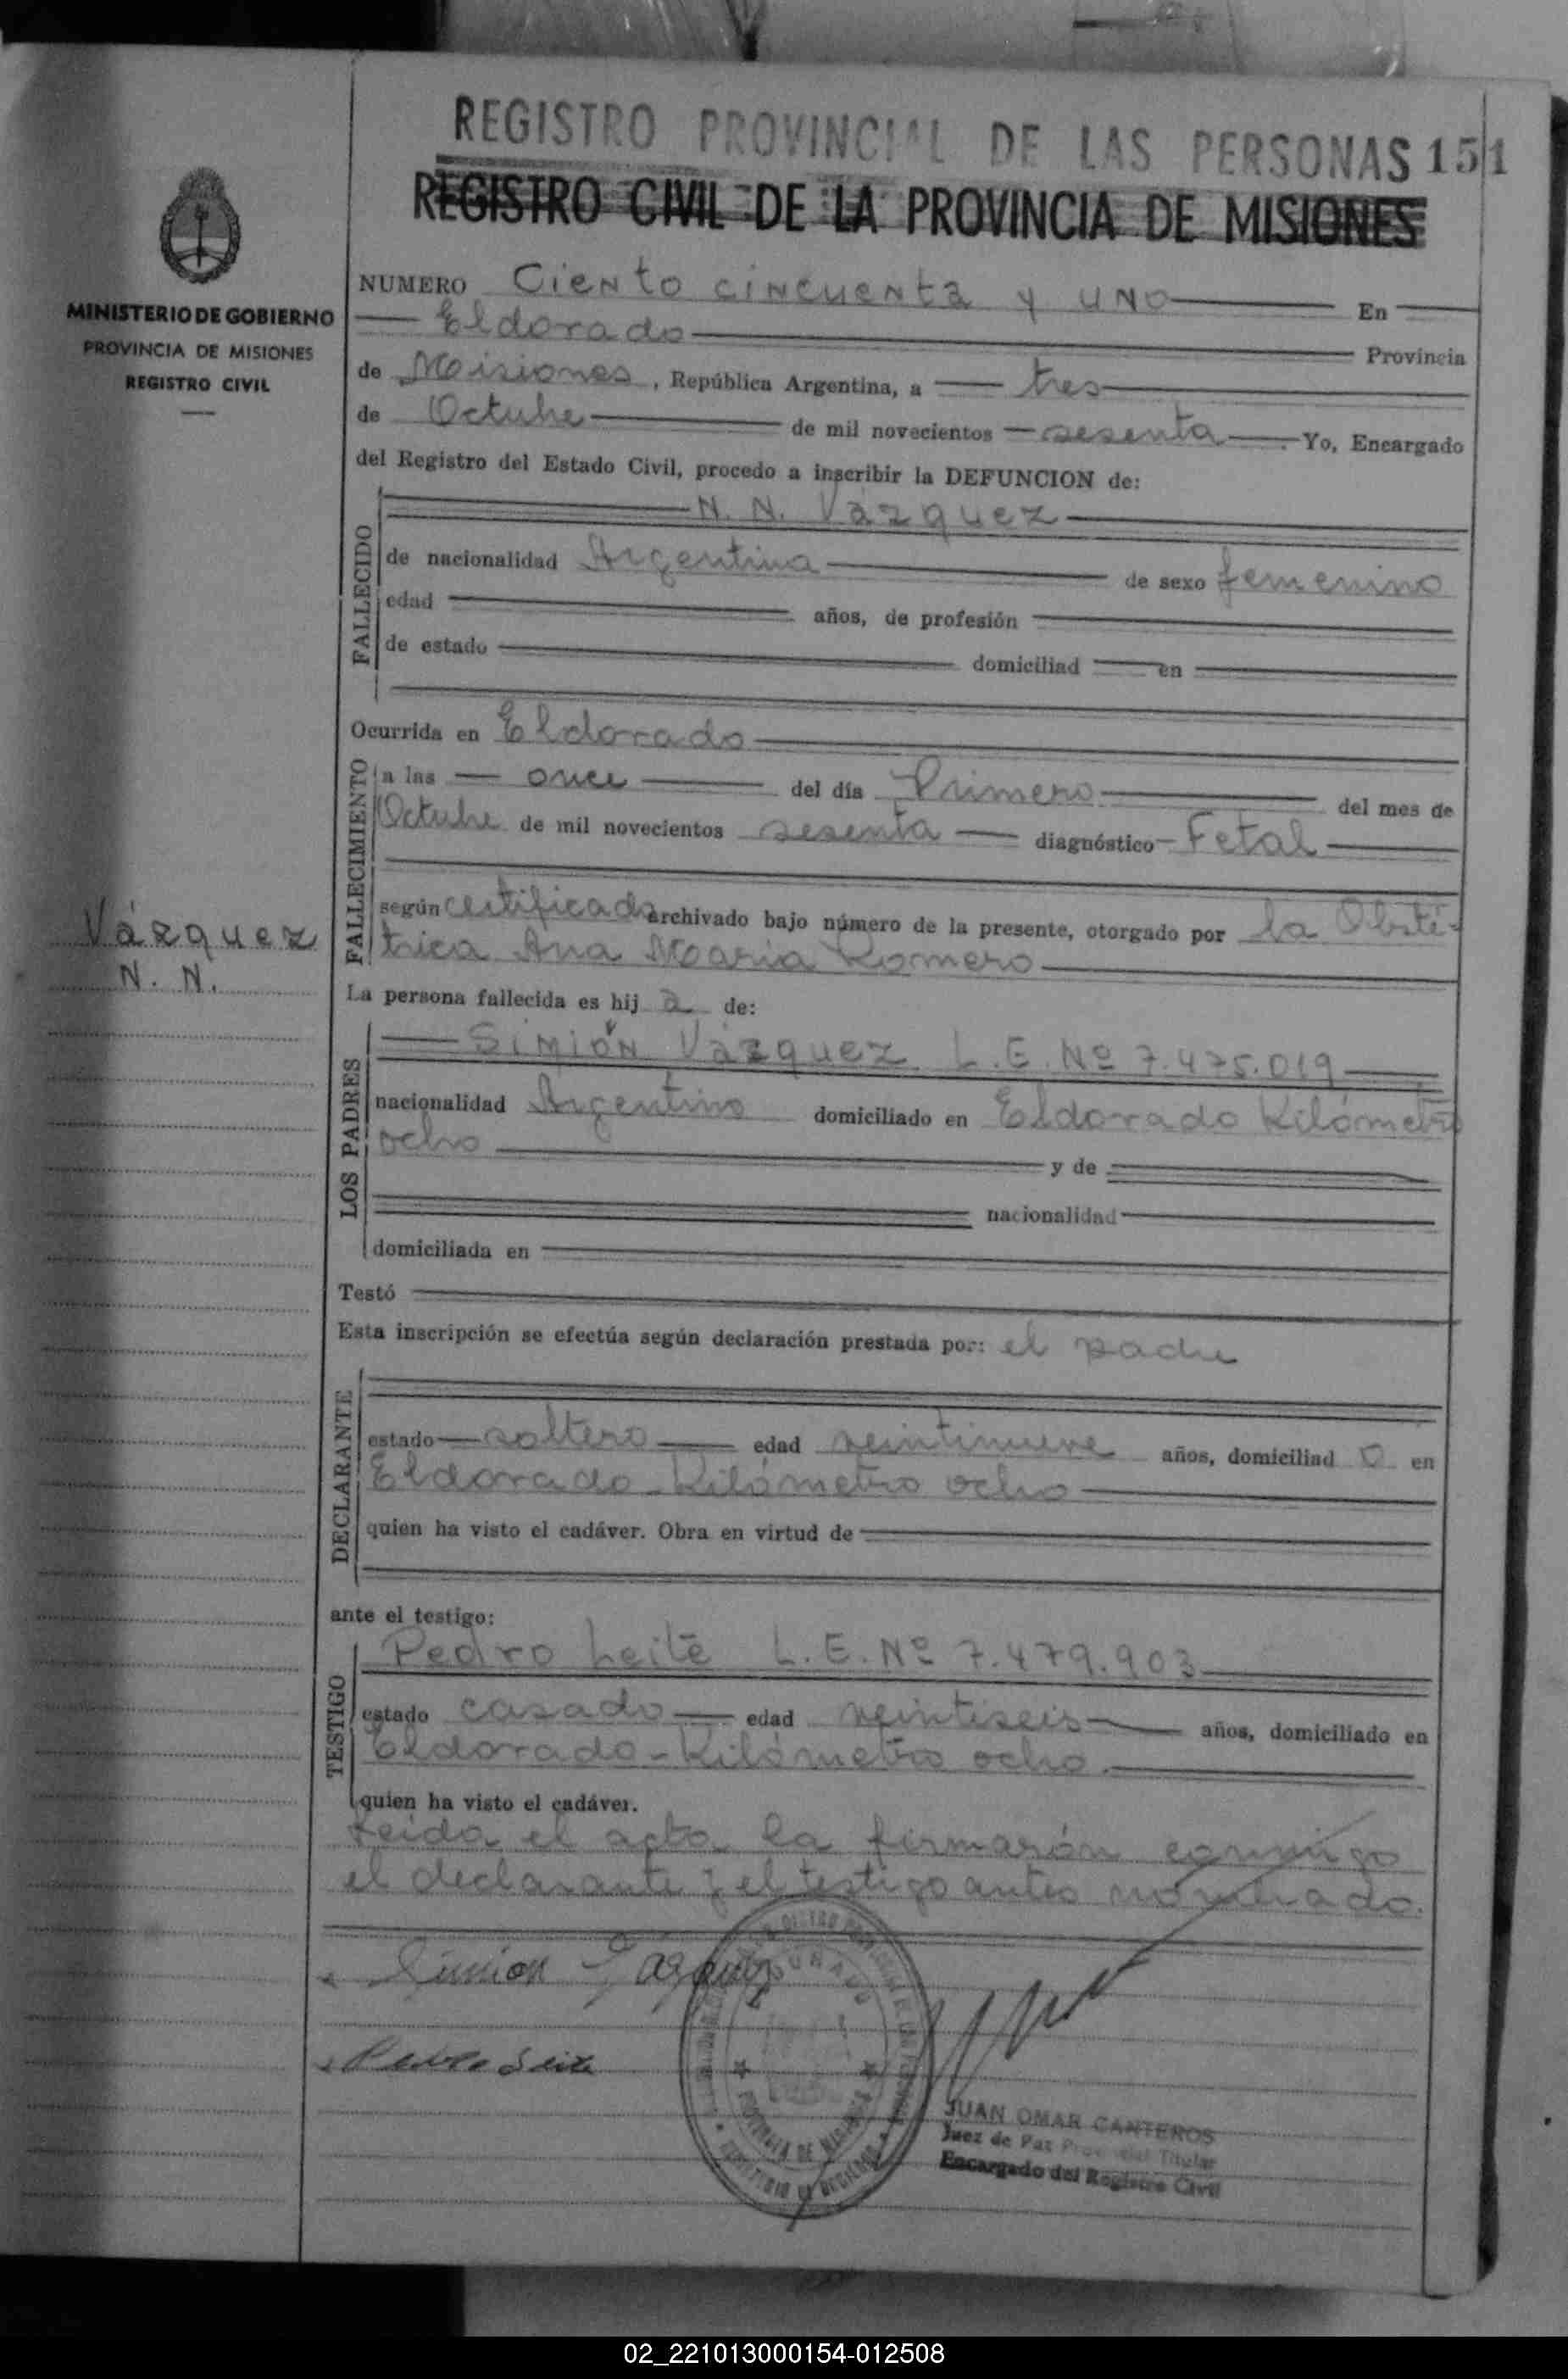 REGISTRO PROVINCIAL DE LAS PERSONAS 151
REGISTRO CIVIL DE LA PROVINCIA DE MISIONES
MINISTERIO DE GOBIERNO
PROVINCIA DE MISIONES
REGISTRO CIVIL
NUMERO Ciento cincuenta y uno En
Eldorado Provincia
de Misiones, República Argentina, a tres
de Octubre de mil novecientos sesenta. Yo, Encargado
del Registro del Estado Civil, procedo a inscribir la DEFUNCION de:
FALLECIDO
N. N. Vázquez
de nacionalidad Argentina de sexo femenino
edad años, de profesión
de estado domiciliad en
Ocurrida en Eldorado
FALLECIMIENTO
a las once del día Primero del mes de
Octubre de mil novecientos sesenta diagnóstico Fetal
según certificado archivado bajo número de la presente, otorgado por la Obsté-
trica Ana María Romero
Vázquez
N. N.
La persona fallecida es hij a de:
LOS PADRES
Simión Vázquez L.E. Nº 7.475.019
nacionalidad Argentino domiciliado en Eldorado Kilómetro
ocho y de
nacionalidad
domiciliada en
Testó
Esta inscripción se efectúa según declaración prestada por: el padre
DECLARANTE
estado soltero edad veintinueve años, domiciliad o en
Eldorado - Kilómetro ocho
quien ha visto el cadáver. Obra en virtud de
ante el testigo:
TESTIGO
Pedro Leite L.E. Nº 7.479.903
estado casado edad veintiseis años, domiciliado en
Eldorado - Kilómetro ocho.
quien ha visto el cadáver.
Leida el acta la firmarón conmigo
el declarante y el testigo antes nombrado.
Simion Vázquez
Pedro Leite
PROVINCIA DE MISIONES
JUAN OMAR CANTEROS
Juez de Paz Provincial Titular
Encargado del Registro Civil
02_221013000154-012508